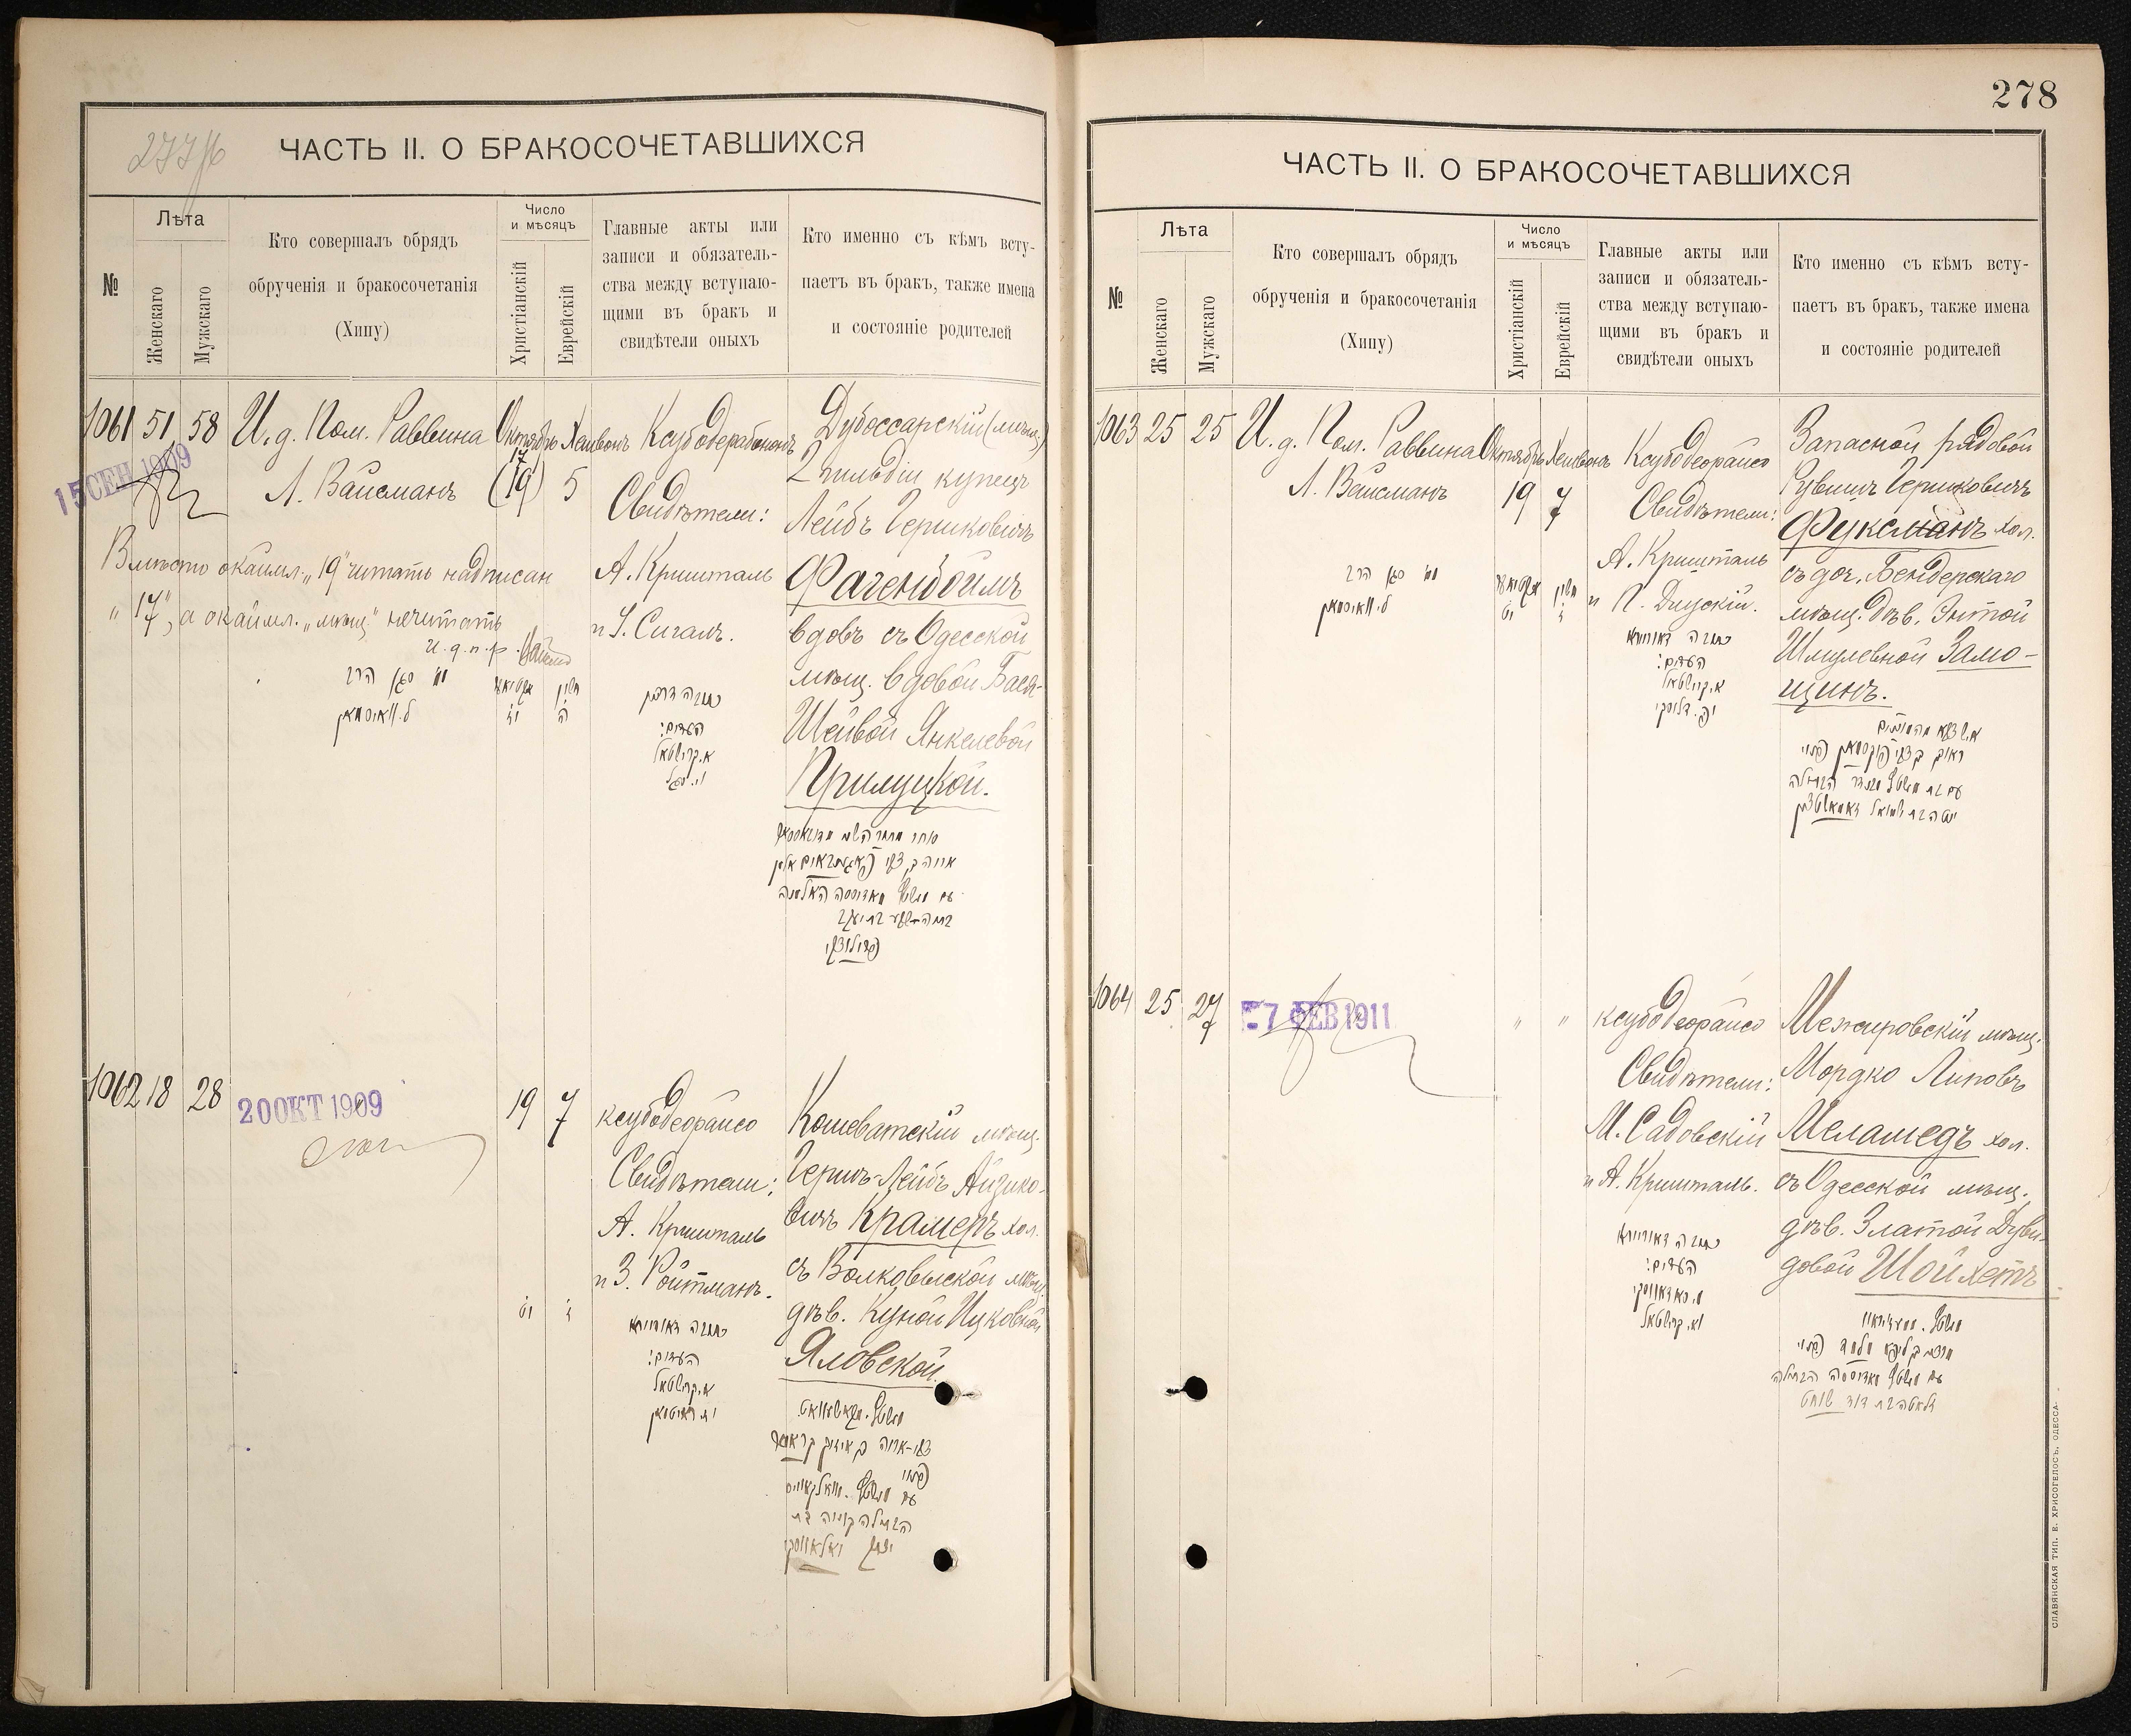 277/б
ЧАСТЬ II. О БРАКОСОЧЕТАВШИХСЯ
№
Лѣта
Женскаго
Мужскаго
Кто совершалъ обрядъ
обрученія и бракосочетанія
(Хипу)
Число
и мѣсяцъ
Христіанскій
Еврейскій
Главные акты или
записи и обязатель-
ства между вступаю-
щими въ бракъ и
свидѣтели оныхъ
Кто именно съ кѣмъ всту-
паетъ въ бракъ, также имена
и состояніе родителей
1061 51 58
И. д. Пом. Раввина
Л. Вайсманъ
Октябрь
17
(19)
Хешвонъ
5
15 СЕН 1909
Вмѣсто окаймл. „19" читать надписан
„17", а окаймл. „мѣщ." не читать
И. д. п. р.
מ״מ סגן הרב
ל. ווייסמאן
אקטיאבר
חשון
יז
ה
Свидѣтели:
А. Кришталь
и І. Сигалъ.
כתובה דרבנן
העדים:
א. קרישטאל
וי. סגל
Дубоссарскій (мѣщ.)
2 гильдіи купецъ
Лейбъ Гершковичъ
Фагенбоймъ
вдовъ съ Одесской
мѣщ. вдовой Бася-
Шейвой Янкелевой
Прилуцкой.
1062 18 28
20 ОКТ 1909
19 7
יט
ז
ксубодеорайсо
Свидѣтели:
А. Кришталь
и З. Ройтманъ.
כתובה דאורייתא
העדים:
א. קרישטאל
וז. ראיטמאן
Кошеватскій мѣщ.
Гершъ-Лейбъ Айзико-
вичъ Крамеръ хол.
съ Волковыской мѣщ.
дѣв. Куной Ицковной
Яловской.
278
ЧАСТЬ II. О БРАКОСОЧЕТАВШИХСЯ
№
Лѣта
Женскаго
Мужскаго
Кто совершалъ обрядъ
обрученія и бракосочетанія
(Хипу)
Число
и мѣсяцъ
Христіанскій
Еврейскій
Главные акты или
записи и обязатель-
ства между вступаю-
щими въ бракъ и
свидѣтели оныхъ
Кто именно съ кѣмъ всту-
паетъ въ бракъ, также имена
и состояніе родителей
1063 25 25
И. д. Пом. Раввина
Л. Вайсманъ
Октябрь
19
Хешвонъ
7
מ״מ סגן הרב
ל. ווייסמאן
אקטיאבר
חשון
יט
ז
Ксубодеорайсо
Свидѣтели:
А. Кришталь
и П. Длускій.
כתובה דאורייתא
העדים:
א. קרישטאל
ופ. דלוסקי
Запасной рядовой
Рувинъ Гершковичъ
Фуксманъ хол.
съ доч. Бендерскаго
мѣщ. дѣв. Энтой
Шмулевной Замо-
щинъ.
1064 25 27
7 ФЕВ 1911
" "
ксубодеорайсо
Свидѣтели:
М. Садовскій
и А. Кришталь.
כתובה דאורייתא
העדים:
מ. סאדאווסקי
וא. קרישטאל
Межировскій мѣщ.
Мордко Липовъ
Меламедъ хол.
съ Одесской мѣщ.
дѣв. Златой Дуви-
довой Шойхетъ
СЛАВЯНСКАЯ ТИП. Е. ХРИСОГЕЛОСЪ, ОДЕССА.